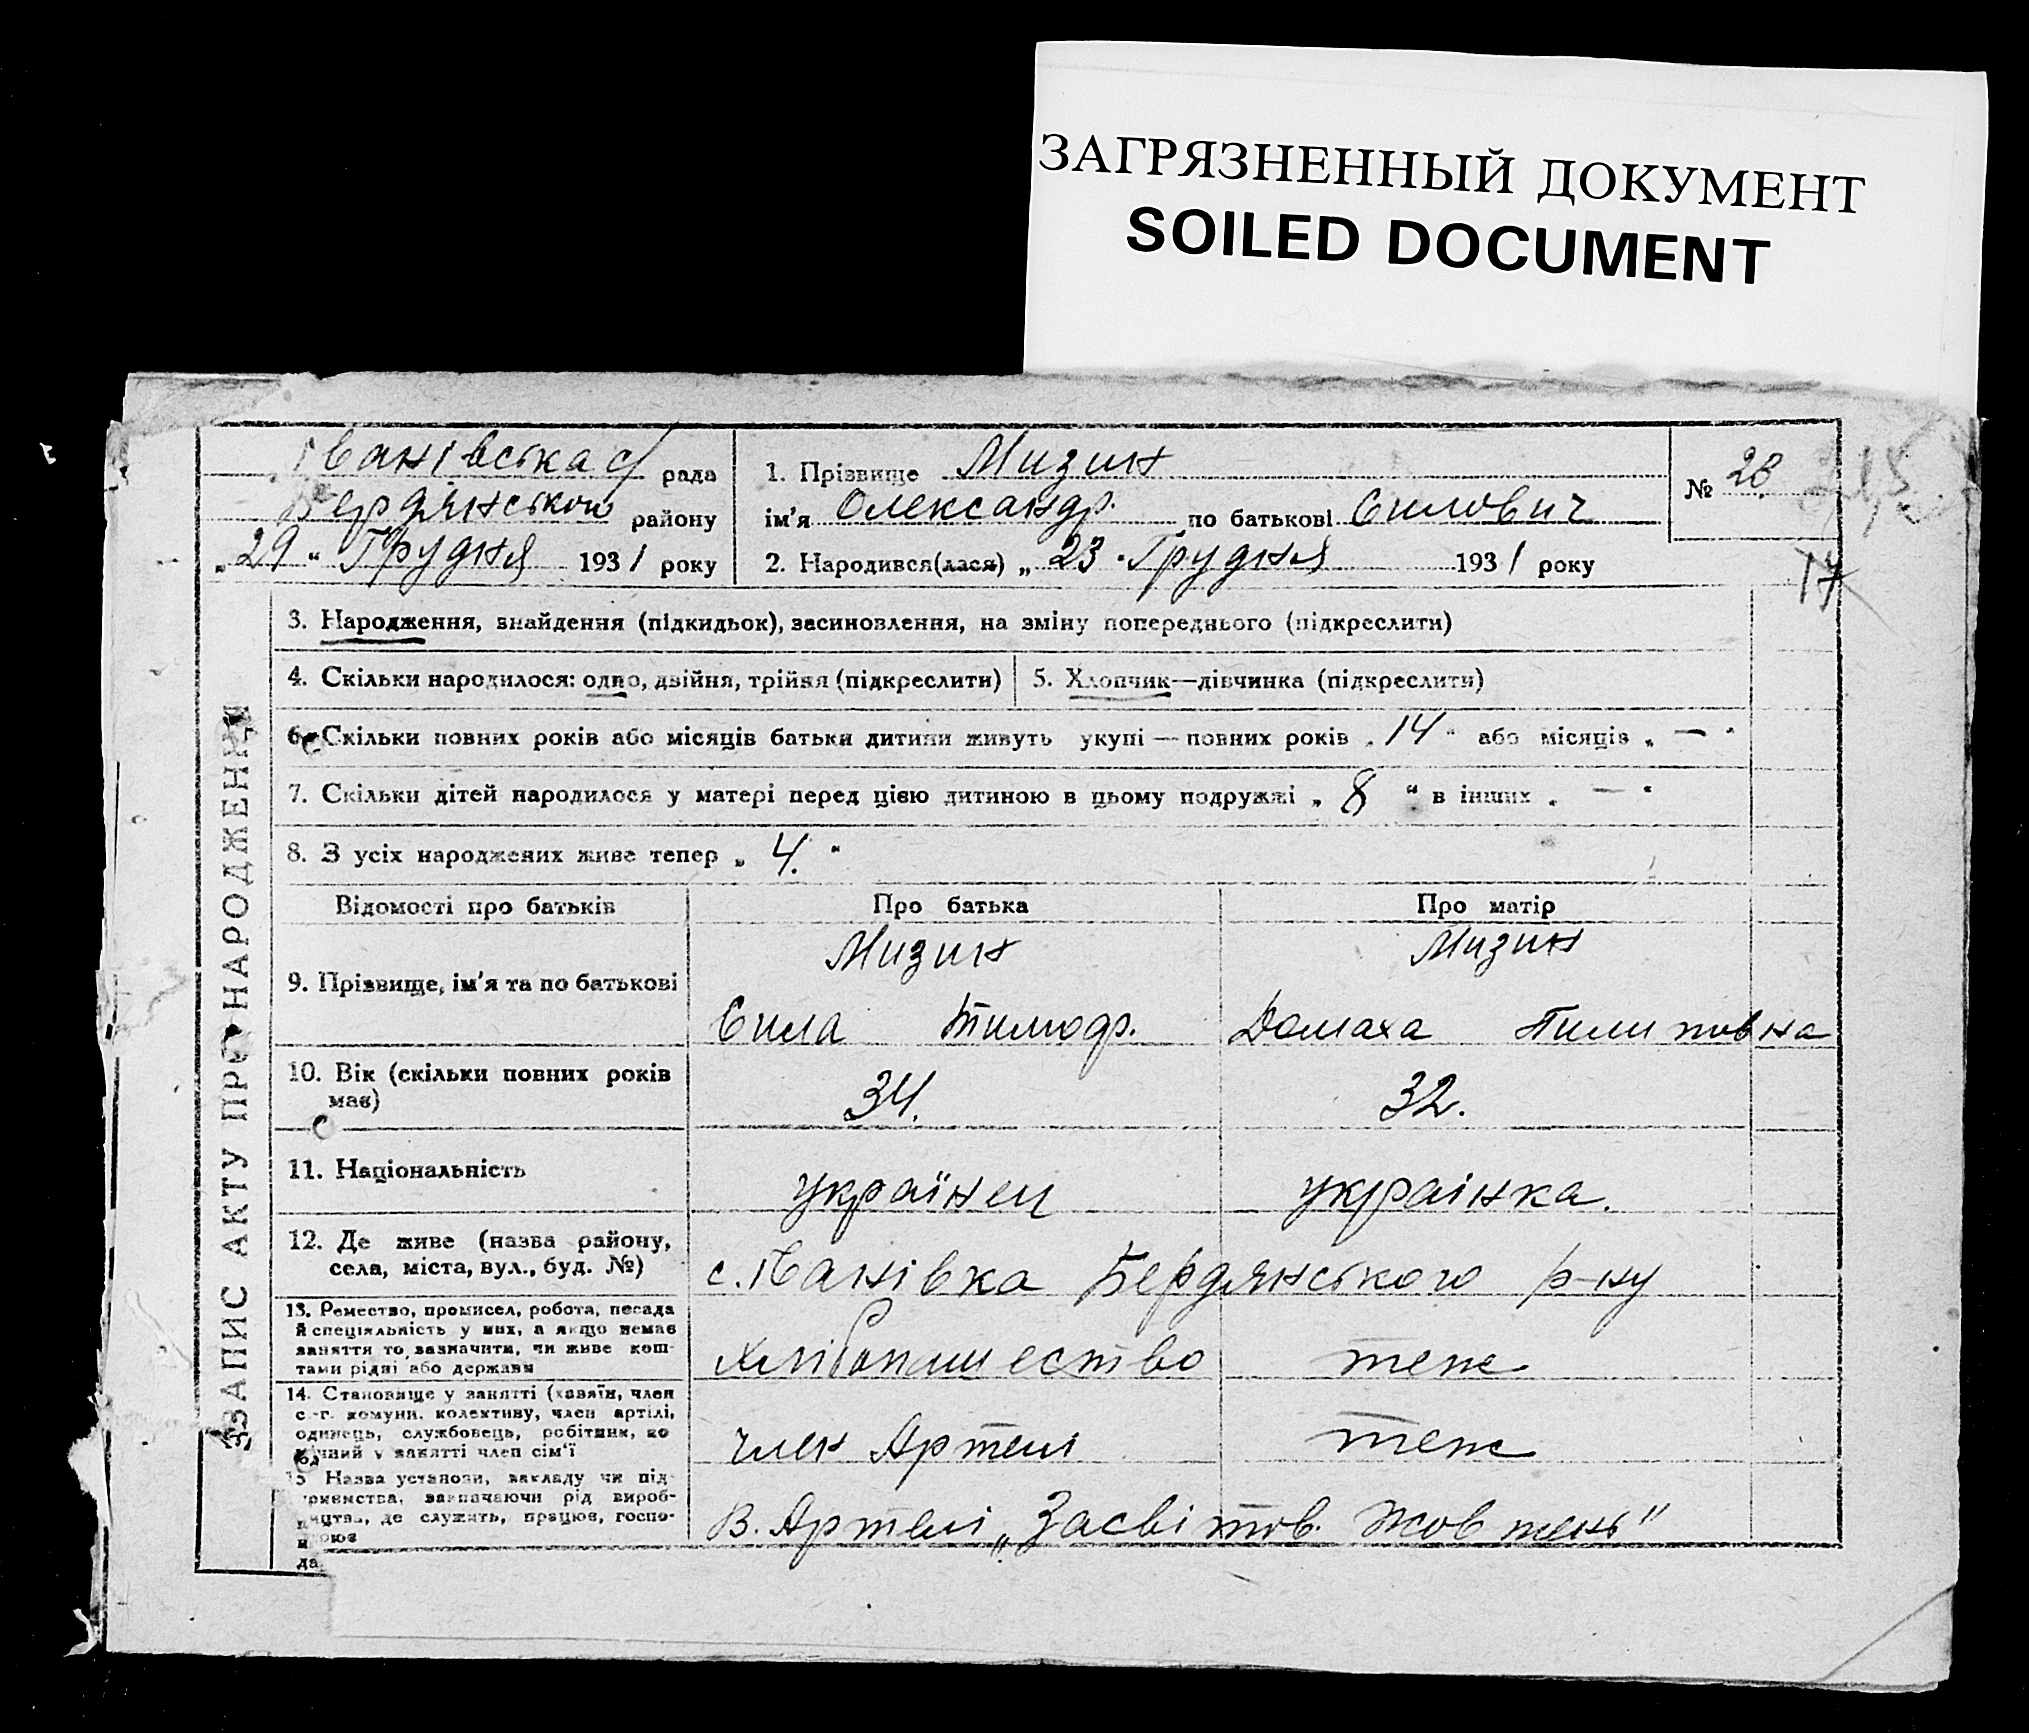 ЗАГРЯЗНЕННЫЙ ДОКУМЕНТ
SOILED DOCUMENT
Іванівська с/ рада
Бердянського району
„29“ Грудня 1931 року
1. Прізвище Мизин
ім'я Олександр. по батькові Силович
2. Народився(лася) „23“ Грудня 1931 року
№ 28
17
ЗАПИС АКТУ ПРО НАРОДЖЕННЯ
3. Народження, знайдення (підкидьок), засиновлення, на зміну попереднього (підкреслити)
4. Скільки народилося: одно, двійня, трійня (підкреслити)
5. Хлопчик—дівчинка (підкреслити)
6. Скільки повних років або місяців батьки дитини живуть укупі — повних років „14“ або місяців „—“
7. Скільки дітей народилося у матері перед цією дитиною в цьому подружжі „8“ в інших „—“
8. З усіх народжених живе тепер „4.“
Відомості про батьків Про батька Про матір
Мизин Мизин
9. Прізвище, ім'я та по батькові
Сила Тимофр. Домаха Пилиповна
10. Вік (скільки повних років
має)
34. 32.
11. Національність
українец украінка.
12. Де живе (назва району,
села, міста, вул., буд. №)
с. Іванівка Бердянського р-ну
13. Ремество, промисел, робота, посада
й спеціяльність у них, а якщо немає
заняття то зазначити, чи живе кош-
тами рідні або держави
Хлібопашество теж
14. Становище у занятті (хазяїн, член
с.-г. комуни, колективу, член артілі,
одинець, службовець, робітник, по
мічний у занятті член сім'ї
член Артелі теж
15 Назва установи, закладу чи під-
приємства, зазначаючи рід вироб-
ництва, де служить, працює, госпо-
да
В. Артелі „Засвітов. Жовтень“